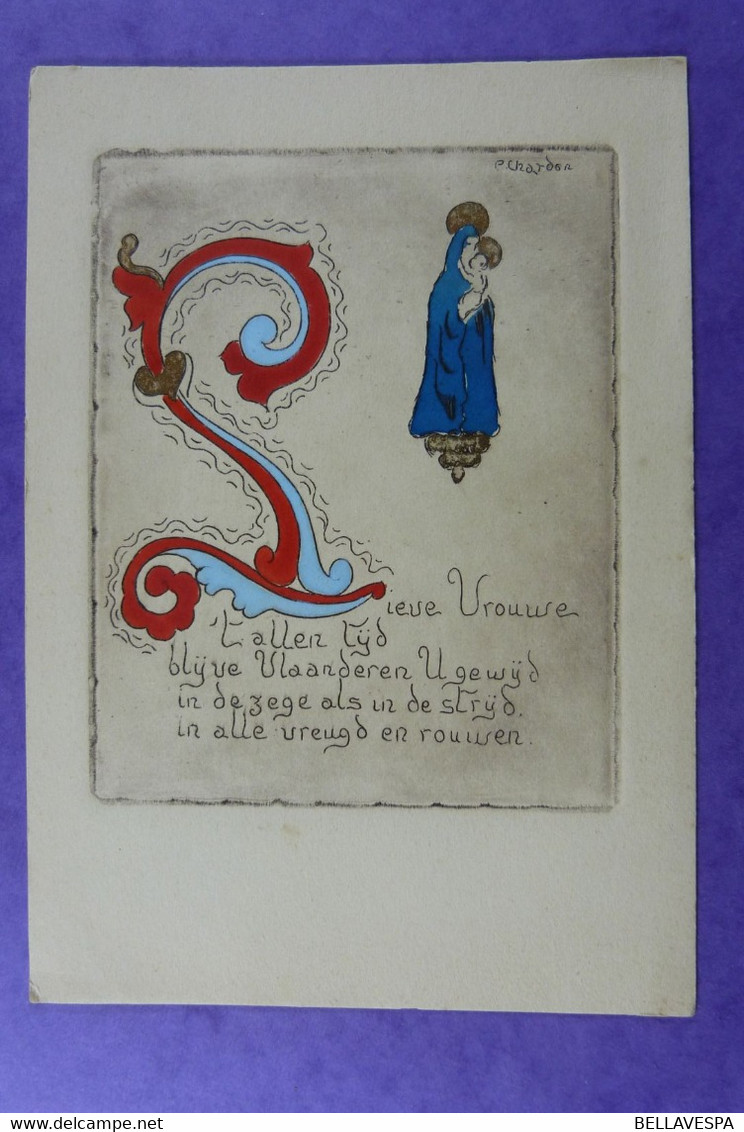 P. Chardon
Lieve Vrouwe
't allen tijd
blijve Vlaanderen U gewijd
in de zege als in de strijd.
in alle vreugd en rouwen.
BELLAVESPA